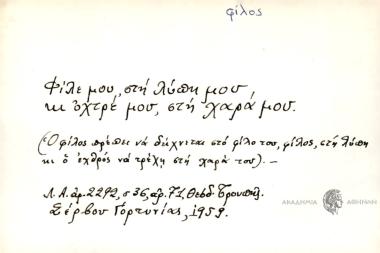 φίλος
Φίλε μου, στή λύπη μου
κι ὀχτρέ μου, στή χαρά μου.
(Ὁ φίλος πρέπει νά δείχνεται στό φίλο του, φίλος, στή λύπη
κι ὁ ἐχθρός νά τρέχη στή χαρά του). —
Λ. Α. ἀρ. 2292, σ 36, ἀρ. 71, Θεοδ.
Σέρβου Γορτυνίας, 1959.
ΑΚΑΔΗΜΙΑ ΑΘΗΝΩΝ